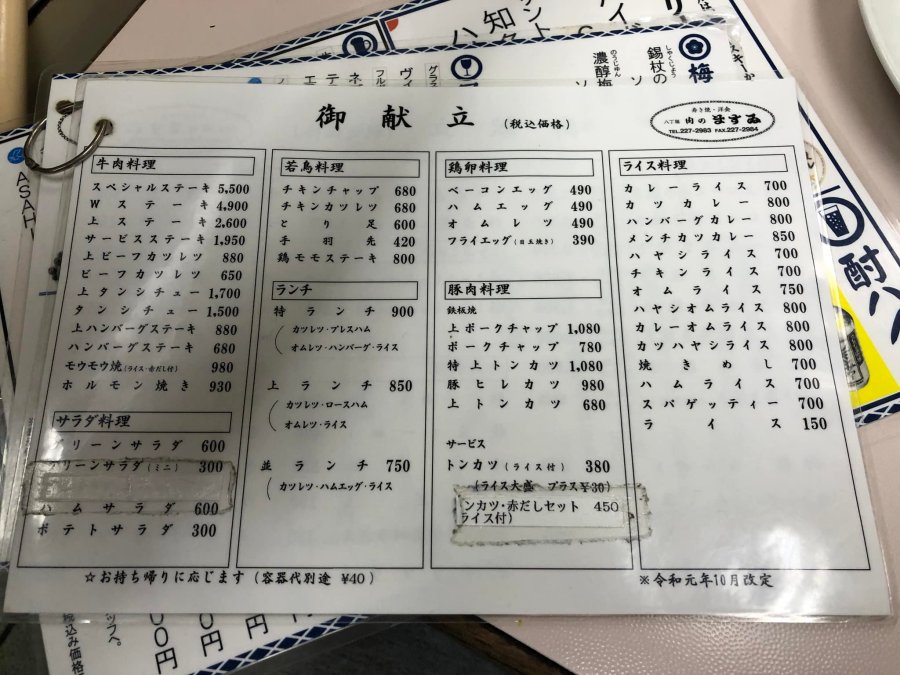 御献立 (税込価格)
寿き焼・洋食
八丁堀 肉のますゐ
TEL.227-2983 FAX.227-2984
牛肉料理
スペシャルステーキ 5,500
Wステーキ 4,900
上ステーキ 2,600
サービスステーキ 1,950
上ビーフカツレツ 880
ビーフカツレツ 650
上タンシチュー 1,700
タンシチュー 1,500
上ハンバーグステーキ 880
ハンバーグステーキ 680
モウモウ焼(ライス・赤だし付) 980
ホルモン焼き 930
サラダ料理
グリーンサラダ 600
グリーンサラダ(ミニ) 300
ハムサラダ 600
ポテトサラダ 300
若鳥料理
チキンチャップ 680
チキンカツレツ 680
とり足 600
手羽先 420
鶏モモステーキ 800
ランチ
特ランチ 900
カツレツ・プレスハム
オムレツ・ハンバーグ・ライス
上ランチ 850
カツレツ・ロースハム
オムレツ・ライス
並ランチ 750
カツレツ・ハムエッグ・ライス
鶏卵料理
ベーコンエッグ 490
ハムエッグ 490
オムレツ 490
フライエッグ(目玉焼き) 390
豚肉料理
鉄板焼
上ポークチャップ 1,080
ポークチャップ 780
特上トンカツ 1,080
豚ヒレカツ 980
上トンカツ 680
サービス
トンカツ(ライス付) 380
(ライス大盛 プラス¥30)
ンカツ・赤だしセット 450
ライス付)
ライス料理
カレーライス 700
カツカレー 800
ハンバーグカレー 800
メンチカツカレー 850
ハヤシライス 700
チキンライス 700
オムライス 750
ハヤシオムライス 800
カレーオムライス 800
カツハヤシライス 800
焼きめし 700
ハムライス 700
スパゲッティー 700
ライス 150
☆お持ち帰りに応じます(容器代別途 ¥40)
※令和元年10月改定
梅
錫杖の
しゃくじょう
濃醇梅
のうじゅん
知
ASAH
酎ハ
税込み価格
00円
00円
円
円